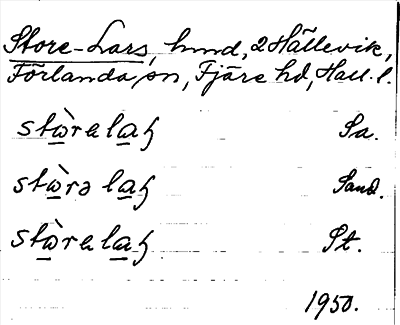 Store-Lars, hmd, 2 Hällevik,
Förlanda sn, Fjäre hd, Hall. l.
stὼralaꞩ Sa.
stὼrə laꞩ Sand.
stὼralaꞩ St.
1950.